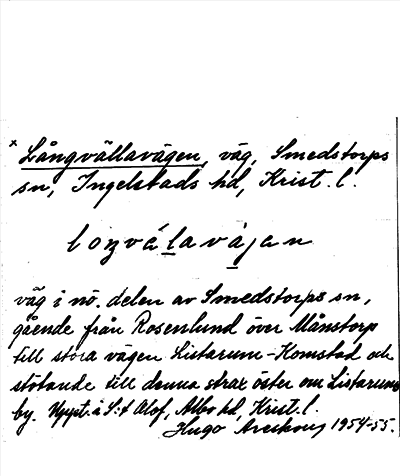 * Långvällavägen, väg, Smedstorps
sn, Ingelstads hd, Krist. l.
väg i nö. delen av Smedstorps sn,
gående från Rosenlund över Månstorp
till stora vägen Listarum-Komstad och
stötande till denna strax öster om Listarums
by. i S:t Olof, Albo hd, Krist. l.
Hugo Areskoug 1954-55.